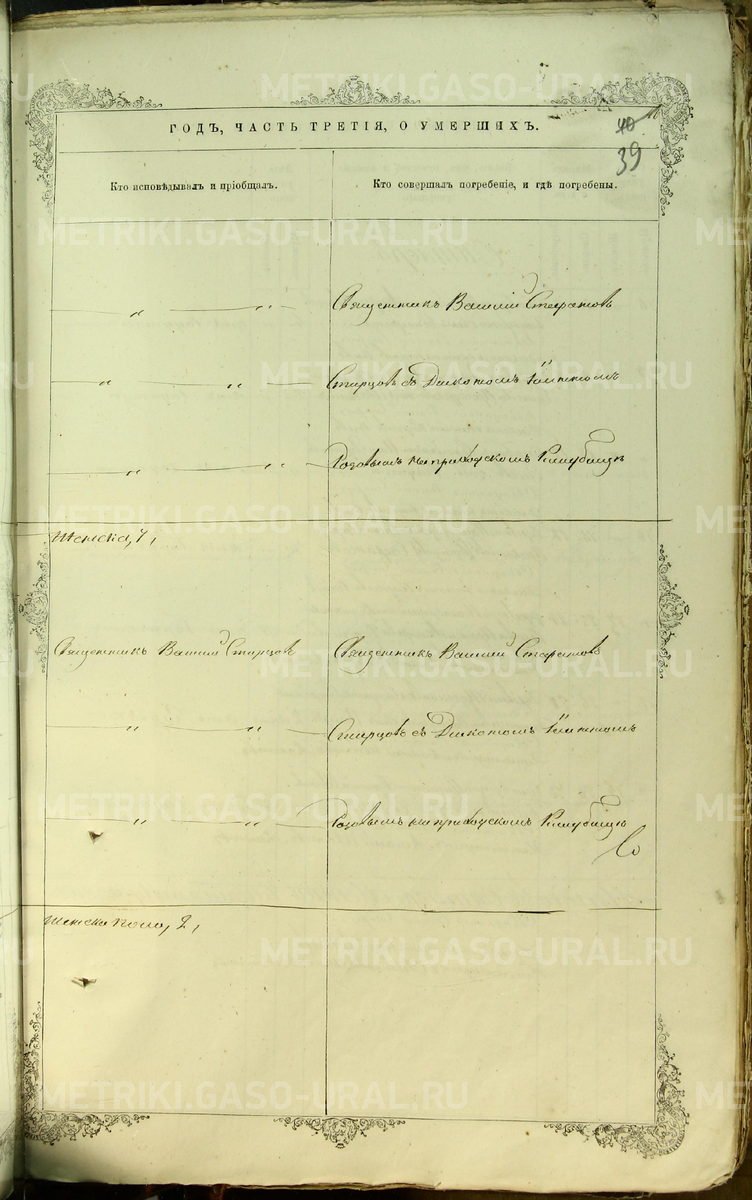 ГОДЪ, ЧАСТЬ ТРЕТІЯ, О УМЕРШИХЪ.
40
39
Кто исповѣдывалъ и пріобщалъ.
Кто совершалъ погребеніе, и гдѣ погребены.
— „ — „ —
Священникъ Василій
— „ — „ —
Старцовъ съ Дьякономъ
— „ — „ —
Роговымъ на приходскомъ Кладбищѣ
Женска, 1,
Священникъ Василій Старцовъ
Священникъ Василій
— „ — „ —
Старцовъ съ Дьякономъ
— „ — „ —
Роговымъ на приходскомъ Кладбищѣ
Женска пола, 2,
METRIKI.GASO-URAL.RU